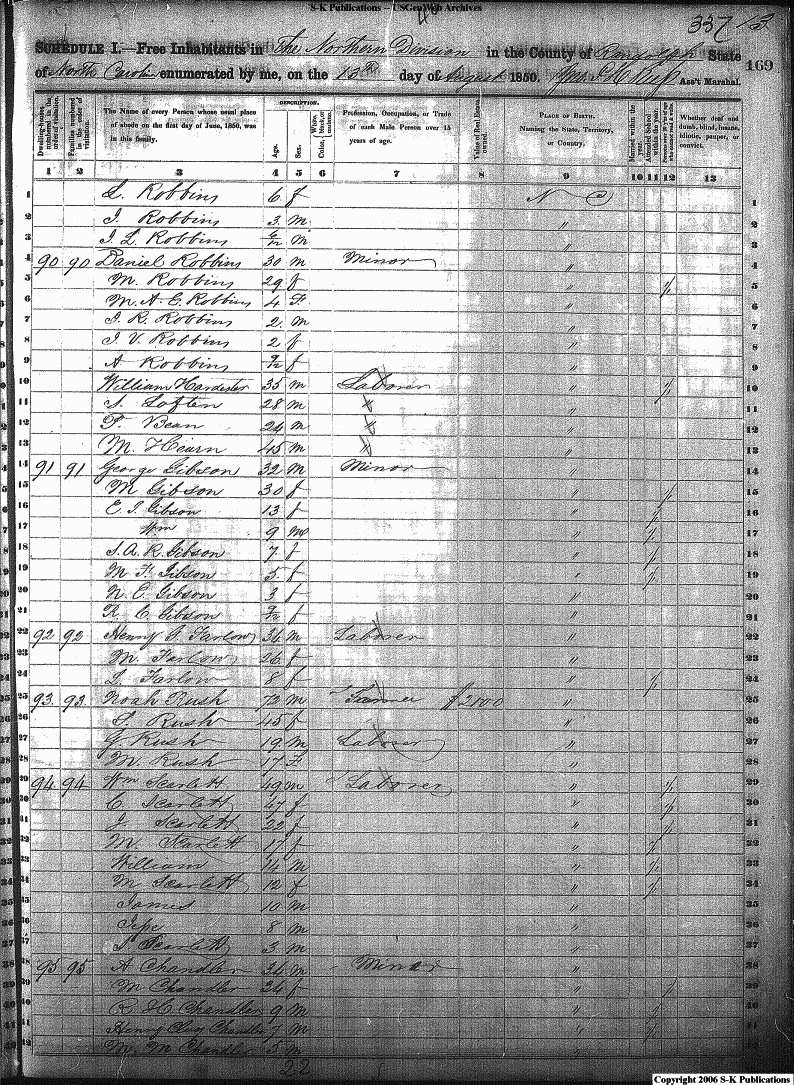 S-K Publications – USGenWeb Archives
337
169
SCHEDULE I.—Free Inhabitants in The Northern Division in the County of Randolph State
of North Carolin enumerated by me, on the 13th day of August 1850. Ass't Marshal.
Dwelling-houses numbered in the order of visitation.
Families numbered in the order of visitation.
The Name of every Person whose usual place of abode on the first day of June, 1850, was in this family.
DESCRIPTION.
Age.
Sex.
Color,
Profession, Occupation, or Trade of each Male Person over 15 years of age.
Value of Real Estate owned.
PLACE OF BIRTH.
Naming the State, Territory, or Country.
Married within the year.
Attended School within the year.
Whether deaf and dumb, blind, insane, idiotic, pauper, or convict.
1 2 3 4 5 6 7 8 9 10 11 12 13
1 L. Robbins 6 f N C 1
2 J Robbins 3 m " 2
3 J. L. Robbins m " 3
4 90 90 Daniel Robbins 30 m Minor " 4
5 M. Robbins 29 f " / 5
6 M. A. E. Robbins 4 F " 6
7 J. R. Robbins 2 m " 7
8 J. V. Robbins 2 f " 8
9 A Robbins f " 9
10 William Hardester 35 m Laborer " / 10
11 S. Loften 28 m " " 11
12 P. Bean 24 m " " 12
13 M. Hearn 45 m " " 13
14 91 91 George Gibson 32 m Minor " 14
15 M Gibson 30 f " / 15
16 E. J. Gibson 13 f " / 16
17 Wm 9 m " / 17
18 S. A. R. Gibson 7 f " / 18
19 M. F. Gibson 5 f " / 19
20 N. E. Gibson 3 f " 20
21 R. C Gibson f " 21
22 92 92 Henry Farlow 34 m Laborer " 22
23 M. Farlow 26 f " 23
24 L Farlow 8 f " / 24
25 93 93 Noah Rush 73 m Farmer $ " 25
26 Rush 45 f " 26
27 J Rush 19 m Laborer " 27
28 M. Rush 17 F " 28
29 94 94 Wm Scarlett 49 m Laborer " / 29
30 C. Scarlett 47 f " / 30
31 J. Scarlett 22 f " / 31
32 M. Scarlett 17 f " / 32
33 William 14 m " / 33
34 M Scarlett 12 f " / 34
35 James 10 m " 35
36 8 m " 36
37 Scarlett 3 m " 37
38 95 95 A Chandler 34 m Minor " 38
39 M Chandler 34 f " / 39
40 R. H Chandler 9 m " / 40
41 Henry Clay Chandler 7 m " / 41
42 M. M Chandler 5 m " 42
22
Copyright 2006 S-K Publications